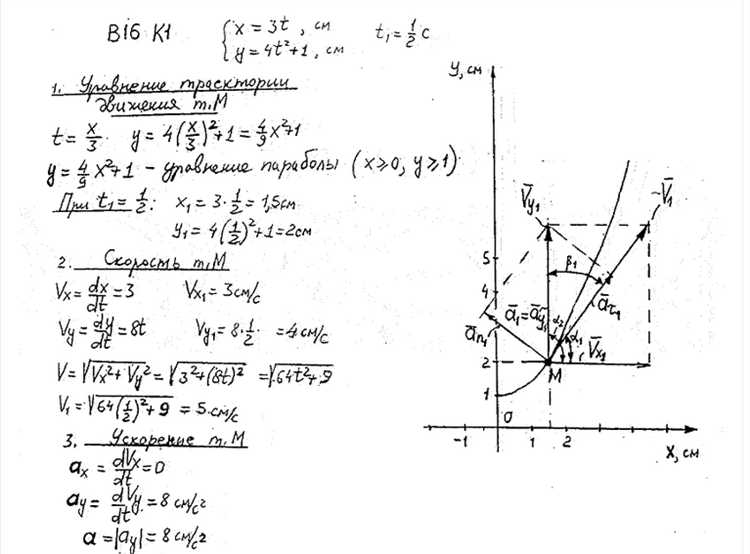 ВІБ К1 { x = 3t , см t₁ = 1/2 с
y = 4t²+1 , см
1. Уравнение траектории
движения т.М
t = x/3 y = 4(x/3)²+1 = 4/9 x²+1
y = 4/9 x²+1 – уравнение параболы (x≥0, y≥1)
При t₁ = 1/2: x₁ = 3·1/2 = 1,5см
y₁ = 4(1/2)²+1 = 2см
2. Скорость т.М
Vx = dx/dt = 3 Vx₁ = 3 см/с
Vy = dy/dt = 8t Vy₁ = 8·1/2 = 4 см/с
V = √Vx²+Vy² = √3²+(8t)² = √64t²+9
V₁ = √64(1/2)²+9 = 5 см/с
3. Ускорение т.М
ax = dVx/dt = 0
ay = dVy/dt = 8 см/с²
a = |ay| = 8 см/с²
y, см
V̄y₁
V̄₁
5
4
β₁
ā₁=āy₁
āτ₁
ān₁
α₂
α₁
V̄x₁
2
M
1
0
-1 1 2
x, см